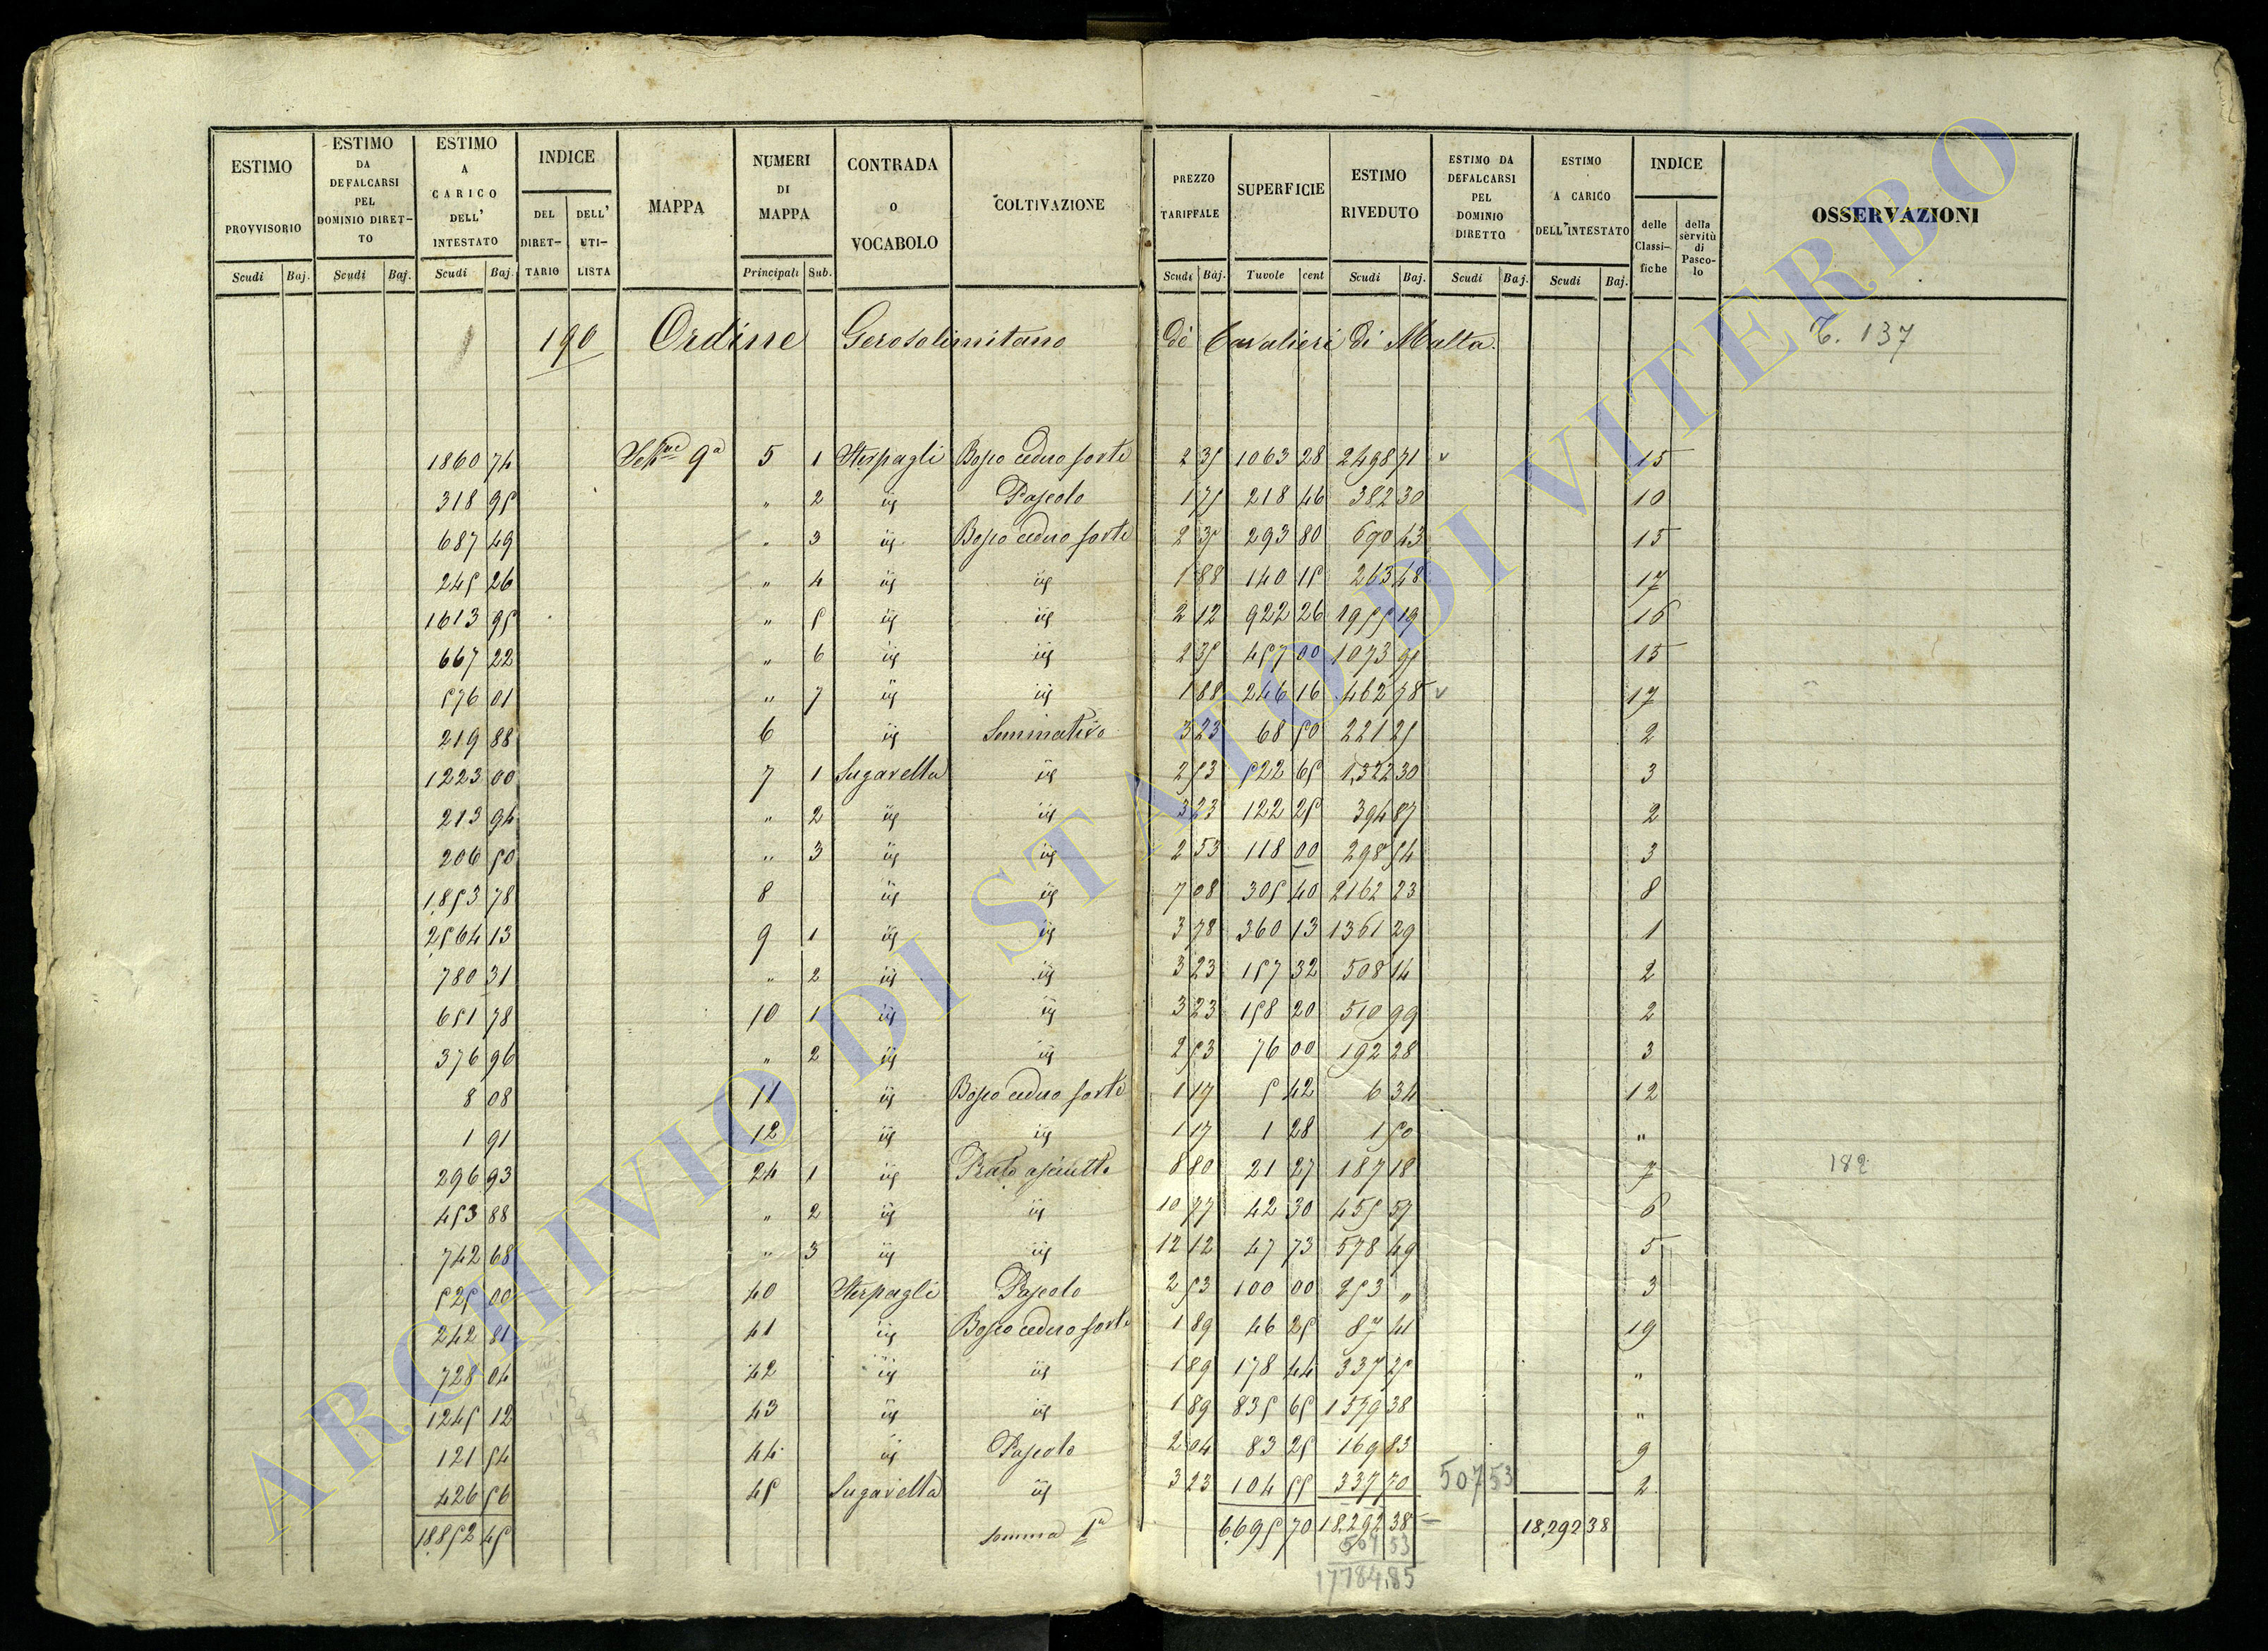 ESTIMO PROVVISORIO | ESTIMO DA DEFALCARSI PEL DOMINIO DIRETTO | ESTIMO A CARICO DELL' INTESTATO | INDICE | MAPPA | NUMERI DI MAPPA | CONTRADA O VOCABOLO | COLTIVAZIONE | PREZZO TARIFFALE | SUPERFICIE | ESTIMO RIVEDUTO | ESTIMO DA DEFALCARSI PEL DOMINIO DIRETTO | ESTIMO A CARICO DELL'INTESTATO | INDICE | OSSERVAZIONI
DEL DIRET-TARIO | DELL' UTI-LISTA | delle Classi-fiche | della servitù di Pasco-lo
Scudi | Baj. | Scudi | Baj. | Scudi | Baj. | Principali | Sub. | Scudi | Baj. | Tavole | cent | Scudi | Baj. | Scudi | Baj. | Scudi | Baj.
190 Ordine Gerosolimitano de' Cavalieri di Malta. 137
1860 74 | 9a | 5 | 1 | Sterpagli | Bosco ceduo forte | 2 35 | 1063 28 | 2498 71 | 15
318 95 | " | 2 | ij | Pascolo | 1 75 | 218 46 | 382 30 | 10
687 49 | " | 3 | ij | Bosco ceduo forte | 2 35 | 293 80 | 690 43 | 15
245 26 | " | 4 | ij | ij | 1 88 | 140 15 | 263 48 | 17
1613 95 | " | 5 | ij | ij | 2 12 | 922 26 | 1955 19 | 16
667 22 | " | 6 | ij | ij | 2 35 | 457 00 | 1073 95 | 15
576 01 | " | 7 | ij | ij | 1 88 | 246 16 | 462 78 | 17
219 88 | 6 | ij | Seminativo | 3 23 | 68 50 | 221 25 | 2
1223 00 | 7 | 1 | Sugarella | ij | 2 53 | 522 65 | 1,322 30 | 3
213 94 | " | 2 | ij | ij | 3 23 | 122 25 | 394 87 | 2
206 50 | " | 3 | ij | ij | 2 53 | 118 00 | 298 54 | 3
1,853 78 | 8 | ij | ij | 7 08 | 305 40 | 2162 23 | 8
2,564 13 | 9 | 1 | ij | ij | 3 78 | 360 13 | 1361 29 | 1
780 31 | " | 2 | ij | ij | 3 23 | 157 32 | 508 14 | 2
651 78 | 10 | 1 | ij | ij | 3 23 | 158 20 | 510 99 | 2
376 96 | " | 2 | ij | ij | 2 53 | 76 00 | 192 28 | 3
8 08 | 11 | ij | Bosco ceduo forte | 1 17 | 5 42 | 6 34 | 12
1 91 | 12 | ij | ij | 1 17 | 1 28 | 1 50 | "
296 93 | 24 | 1 | ij | Prato asciutto | 8 80 | 21 27 | 187 18 | 7 | 182
453 88 | " | 2 | ij | ij | 10 77 | 42 30 | 455 57 | 6
742 68 | " | 3 | ij | ij | 12 12 | 47 73 | 578 49 | 5
525 00 | 40 | Sterpagli | Pascolo | 2 53 | 100 00 | 253 " | 3
242 81 | 41 | ij | Bosco ceduo forte | 1 89 | 46 25 | 87 41 | 19
728 04 | 42 | ij | ij | 1 89 | 178 44 | 337 25 | "
1245 12 | 43 | ij | ij | 1 89 | 835 65 | 1579 38 | "
121 54 | 44 | ij | Pascolo | 2 04 | 83 25 | 169 83 | 9
426 56 | 45 | Sugarella | ij | 3 23 | 104 55 | 337 70 | 507 53 | 2
18,852 45 | somma 1a | 6,695 70 | 18,292 38 | 18,292 38
507 53
17784,85
ARCHIVIO DI STATO DI VITERBO